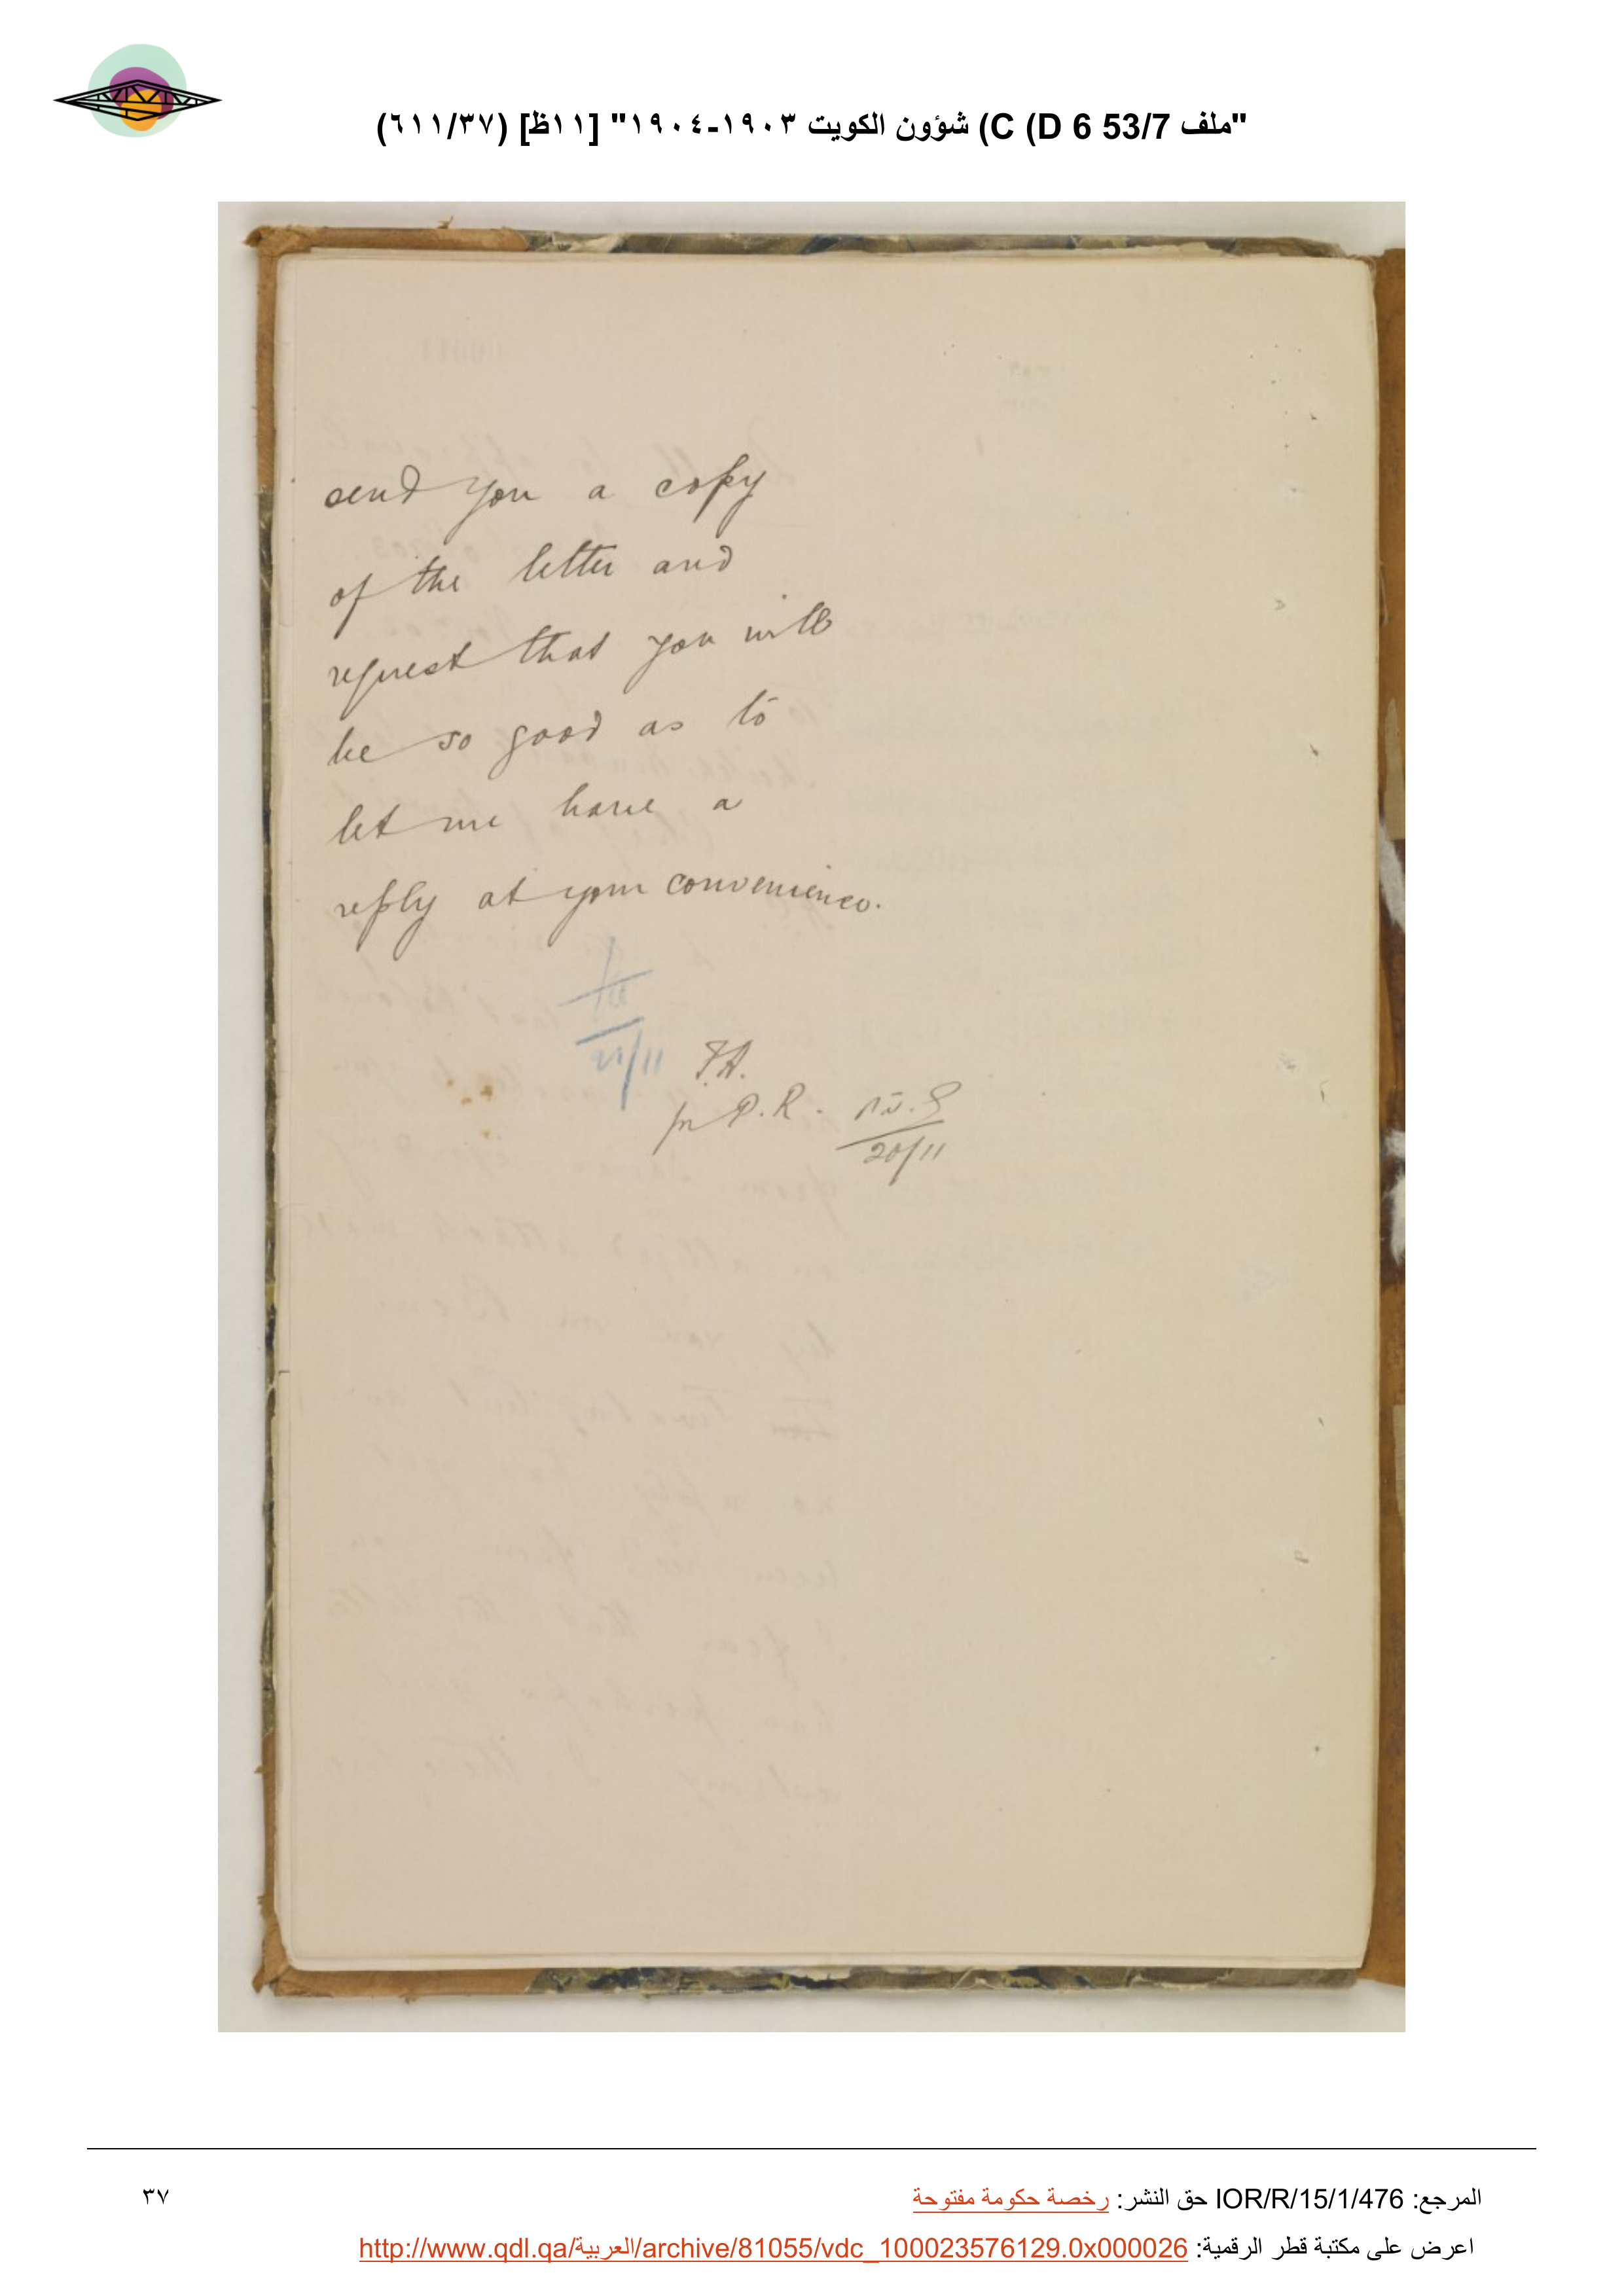 "ملف 53/7 C (D 6) شؤون الكويت ١٩٠٣-١٩٠٤" [١١ظ] (٦١١/٣٧)
send you a copy
of the letter and
request that you will
be so good as to
let me have a
reply at your convenience.
21/11
F.A.
for P.R.
20/11
المرجع: IOR/R/15/1/476 حق النشر: رخصة حكومة مفتوحة
٣٧
اعرض على مكتبة قطر الرقمية: http://www.qdl.qa/العربية/archive/81055/vdc_100023576129.0x000026